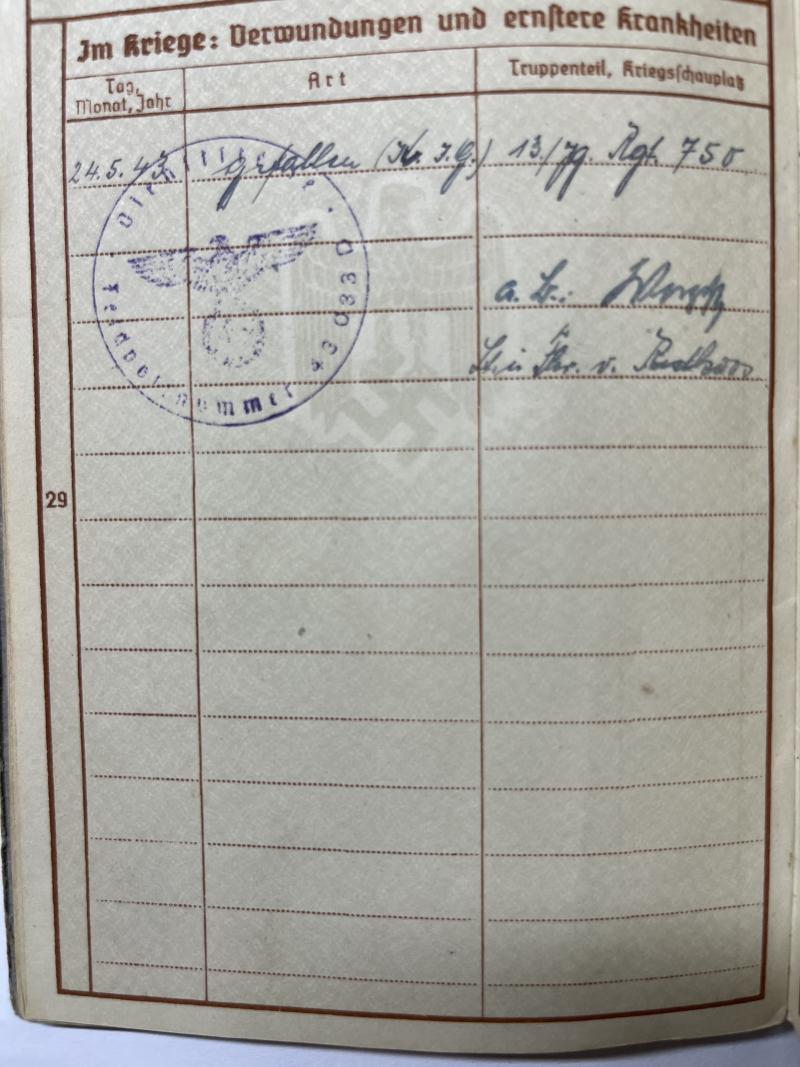 Im Kriege: Verwundungen und ernstere Krankheiten
Tag, Monat, Jahr
Art
Truppenteil, Kriegsschauplatz
24.5.43 gefallen (K. i. G.) 13/Jg. Rgt. 750
Dienststelle · Feldpostnummer 43033 D
a. B.:
Lt. u. v.
29